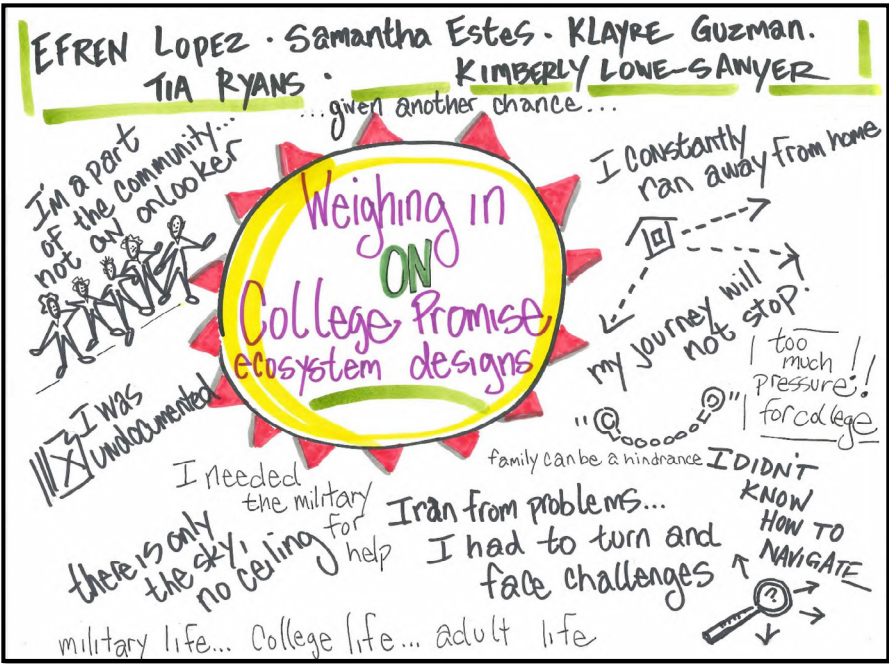 EFREN LOPEZ · Samantha Estes · KLAYRE GUZMAN.
TIA RYANS · KIMBERLY LOWE-SAWYER
...given another chance...
I'm a part
of the community...
not an onlooker
Weighing in
ON
College Promise
ecosystem designs
I constantly
ran away from home
my journey will
not stop!
too
much
pressure!!
for college
I was
undocumented
family can be a hindrance
I needed
the military
for
help
there is only
the sky,
no ceiling
I ran from problems...
I had to turn and
face challenges
I DIDN'T
KNOW
HOW TO
NAVIGATE
?
military life... College life... adult life